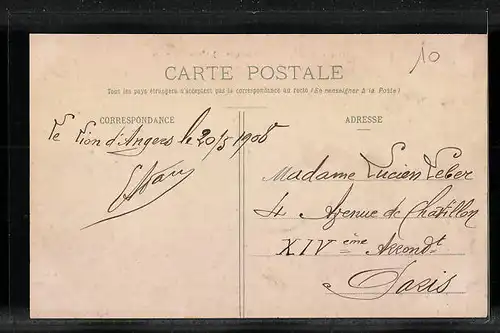 10
CARTE POSTALE
Tous les pays étrangers n'acceptent pas la correspondance au recto (Se renseigner à la Poste)
CORRESPONDANCE
ADRESSE
Le Lion d'Angers le 20/5 1908
Madame Lucien Leber
4 Avenue de Chatillon
XIV ème Arrondt
à Paris